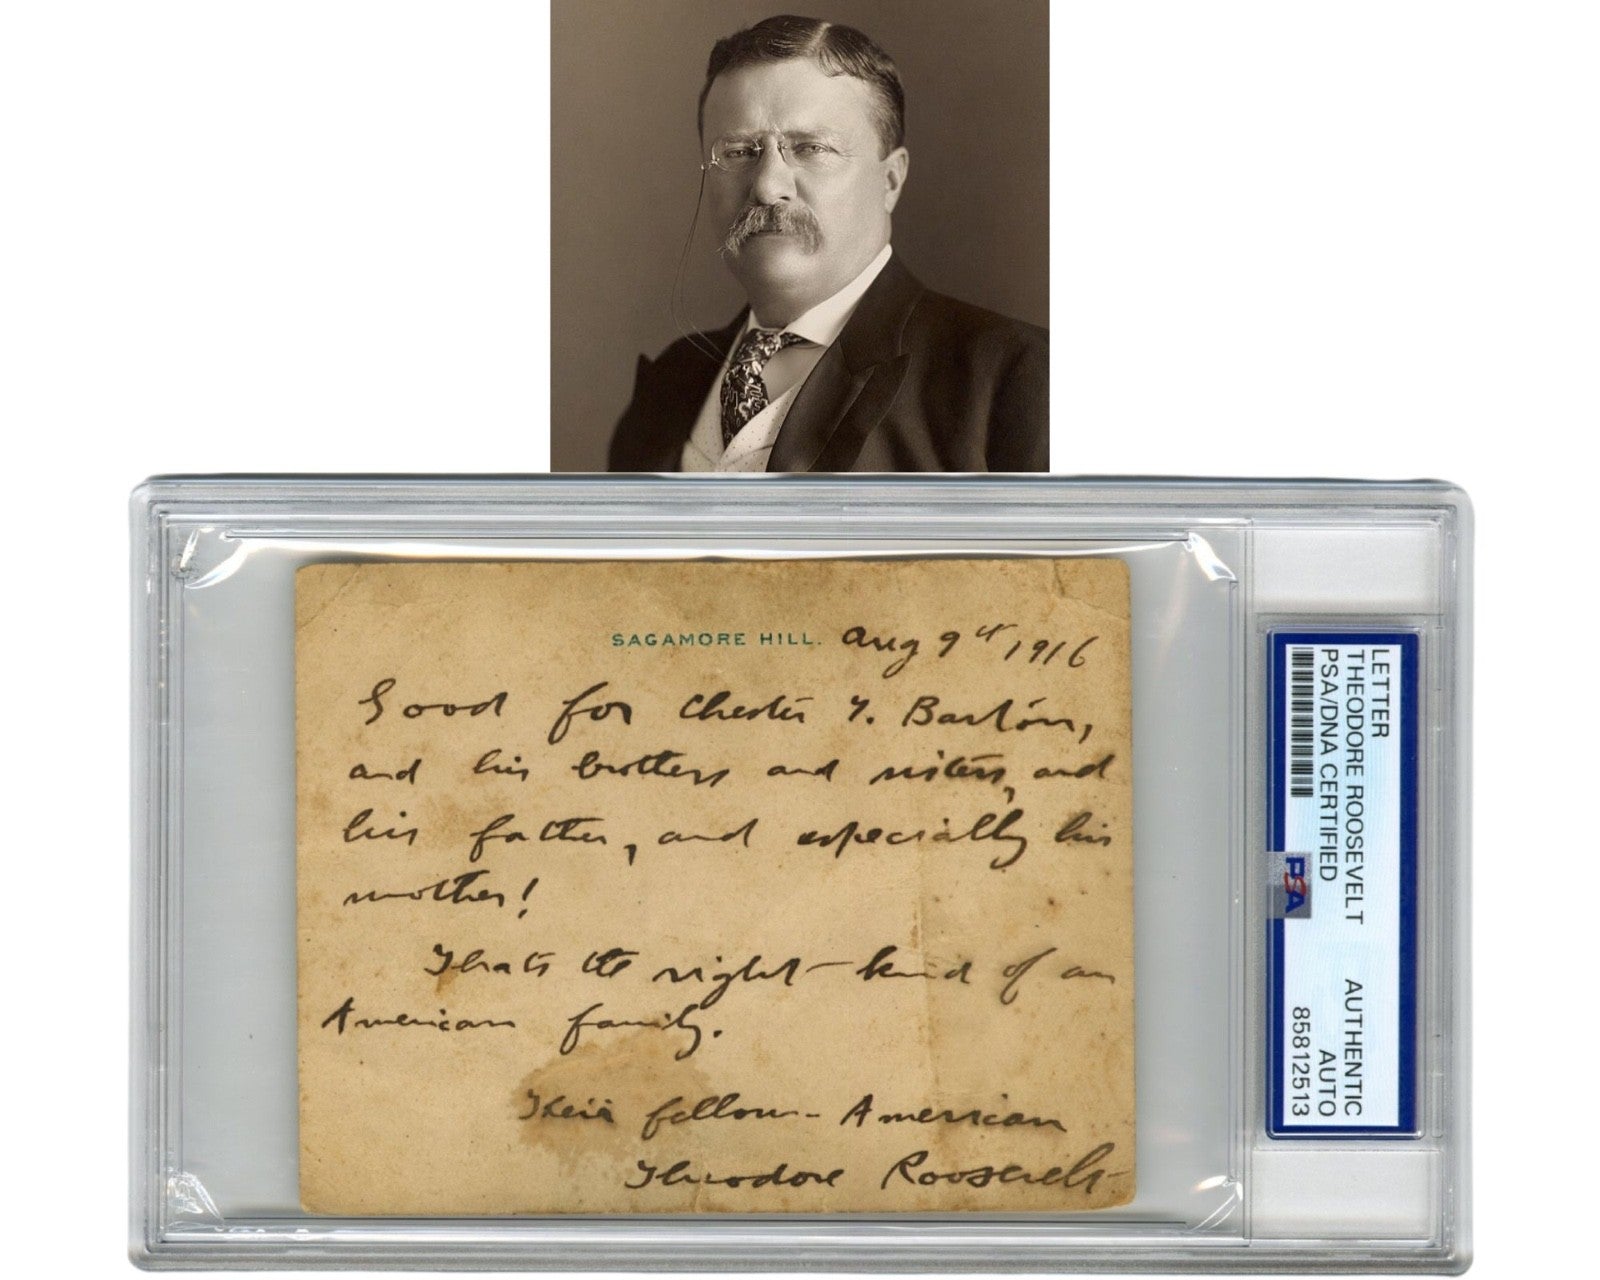 SAGAMORE HILL. Aug 9th 1916
Good for Chester Y. Barton,
and his brothers and sisters, and
his father, and especially his
mother!
Thats the right kind of an
American family.
Their fellow-American
Theodore Roosevelt
LETTER
THEODORE ROOSEVELT
PSA/DNA CERTIFIED
AUTHENTIC
AUTO
85812513
PSA